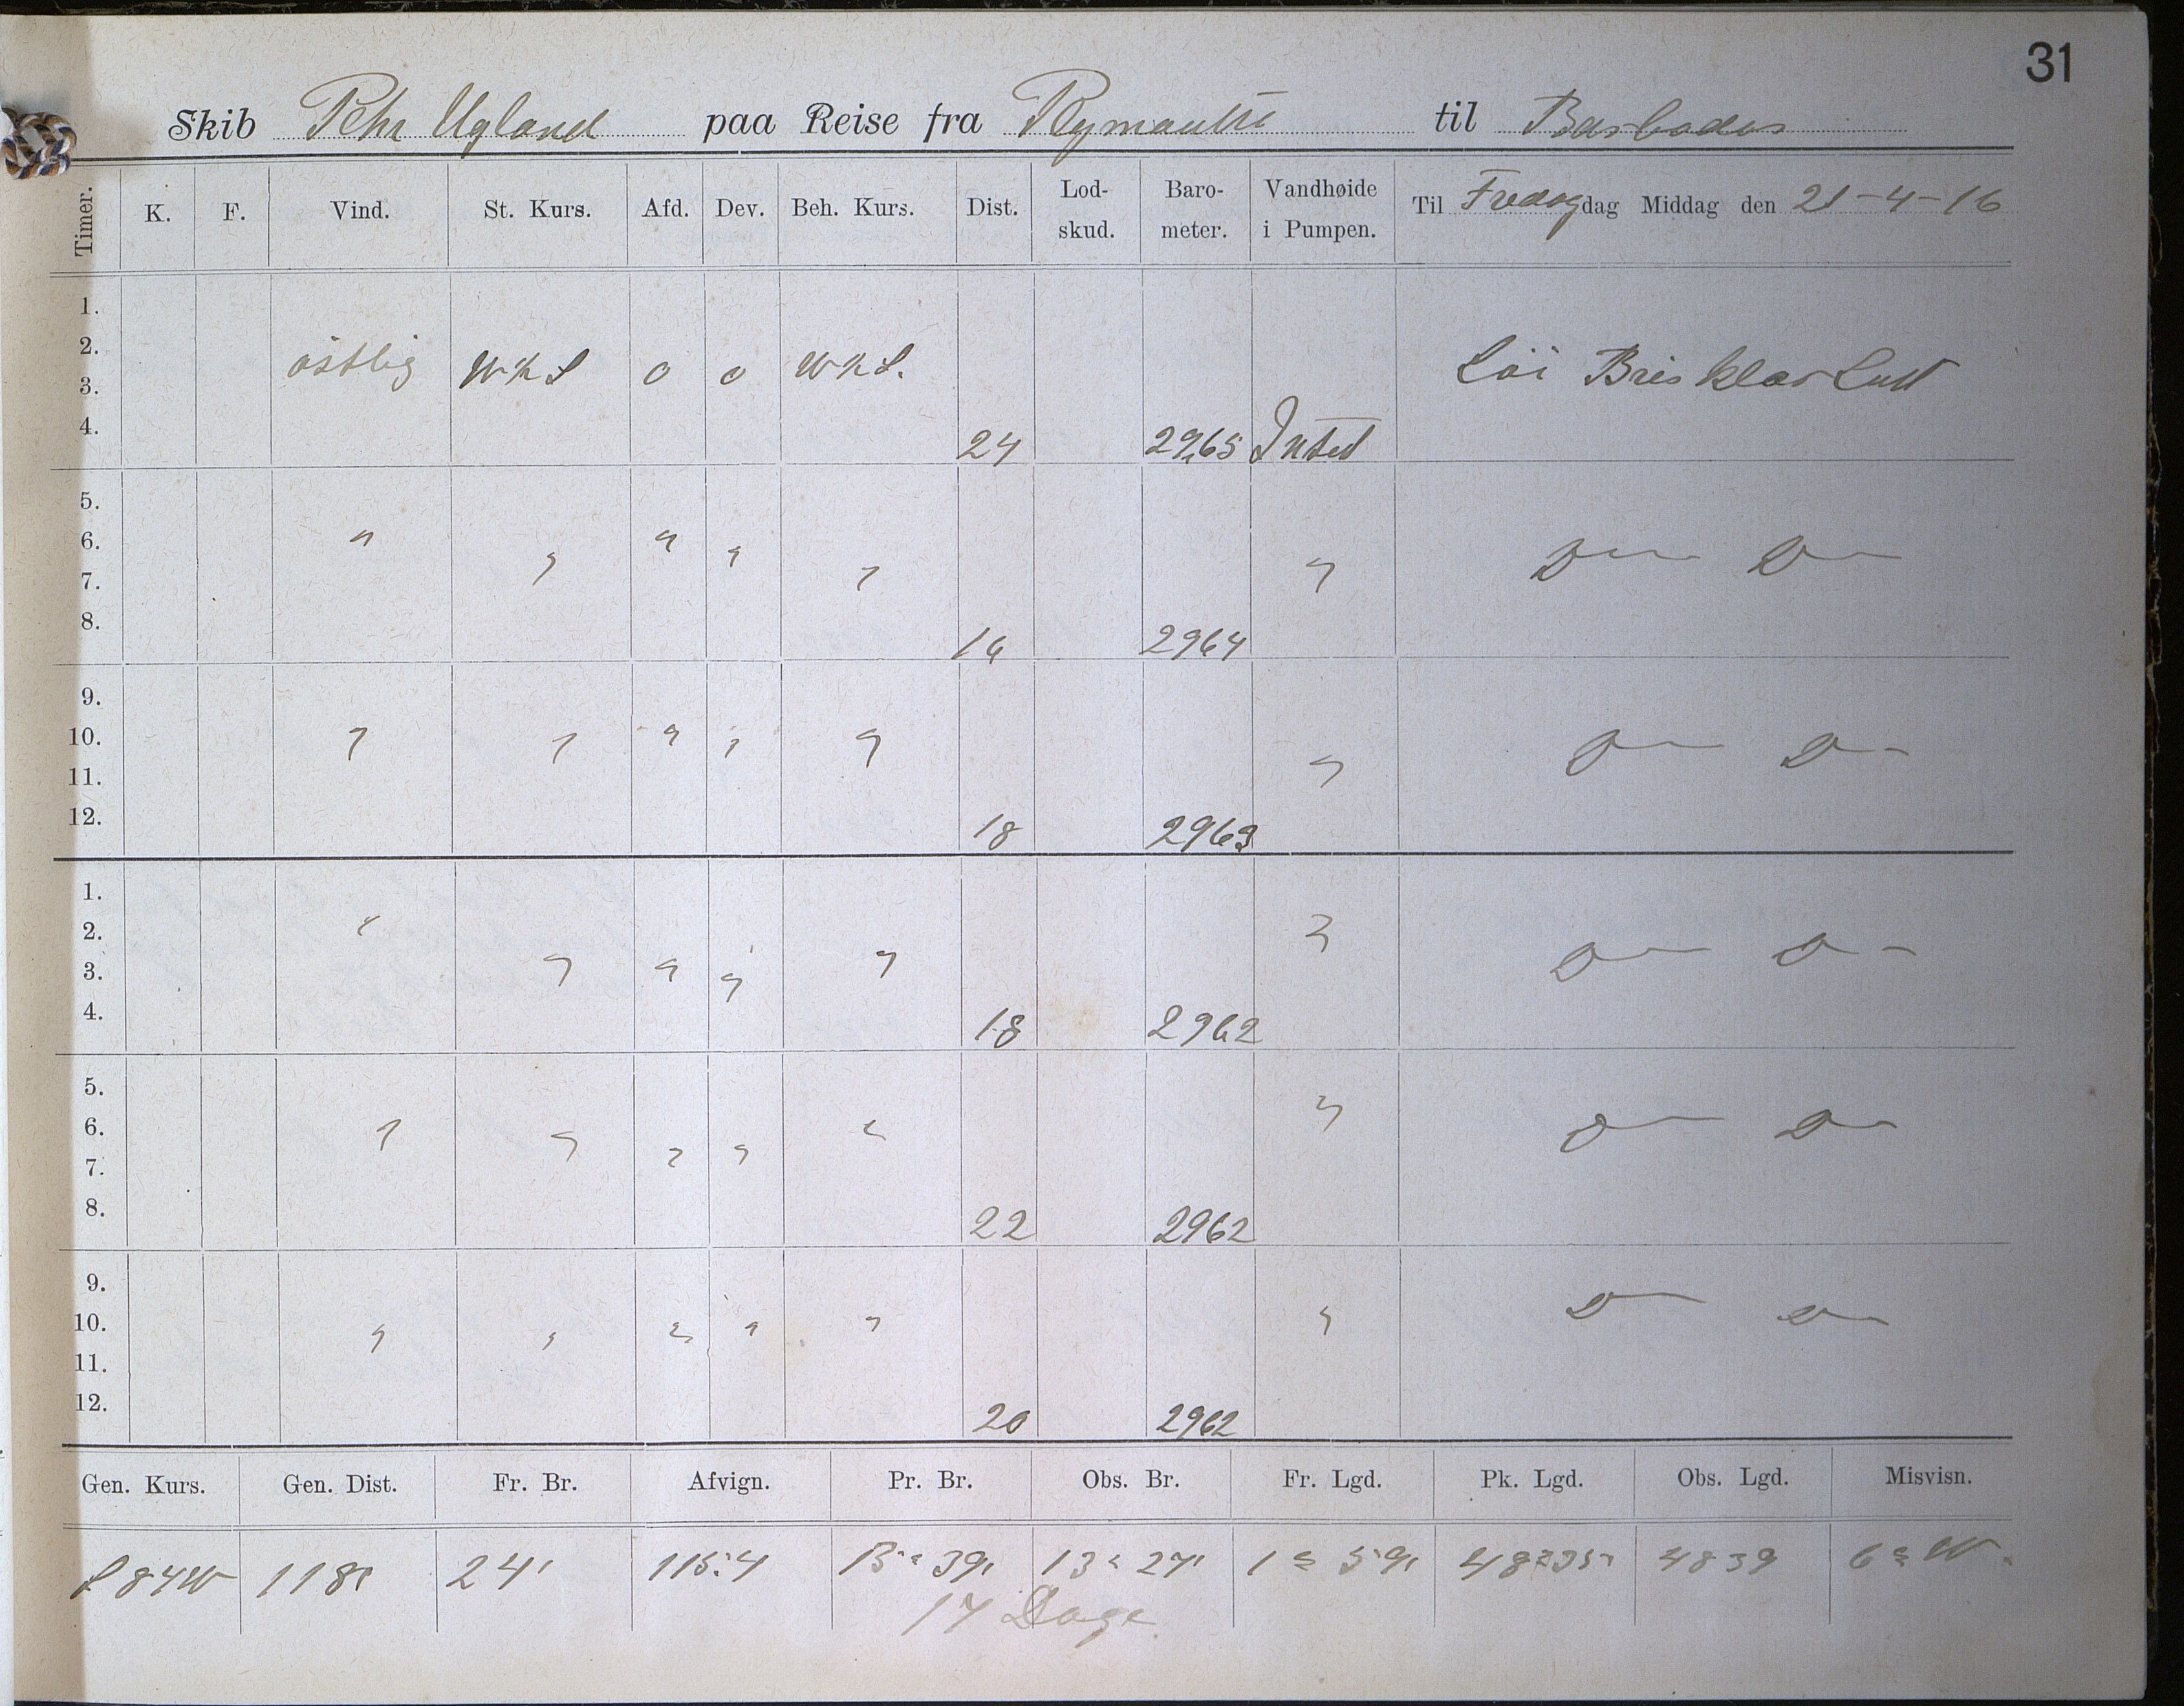 31
Skib Pehr Ugland paa Reise fra Plymouth til Barbados
Timer. K. F. Vind. St. Kurs. Afd. Dev. Beh. Kurs. Dist. Lod-skud. Baro-meter. Vandhøide i Pumpen. Til Fredag dag Middag den 21-4-16
1.
2.
3. östlig WhS 0 0 WhS. Löi Bris klar Luft
4. 24 29,65 Intet
5.
6. " " " " " " D— D—
7.
8. 16 2964
9.
10. " " " " " " D— D—
11.
12. 18 2963
1.
2.
3. " " " " " " D— D—
4. 18 2962
5.
6. " " " " " " D— D—
7.
8. 22 2962
9.
10. " " " " " " D— D—
11.
12. 20 2962
Gen. Kurs. Gen. Dist. Fr. Br. Afvign. Pr. Br. Obs. Br. Fr. Lgd. Pk. Lgd. Obs. Lgd. Misvisn.
S 84 W 118' 24' 115.4 13° 39' 13° 27' 1° 59' 48° 35' 48 39 6° W.
14 Dage.